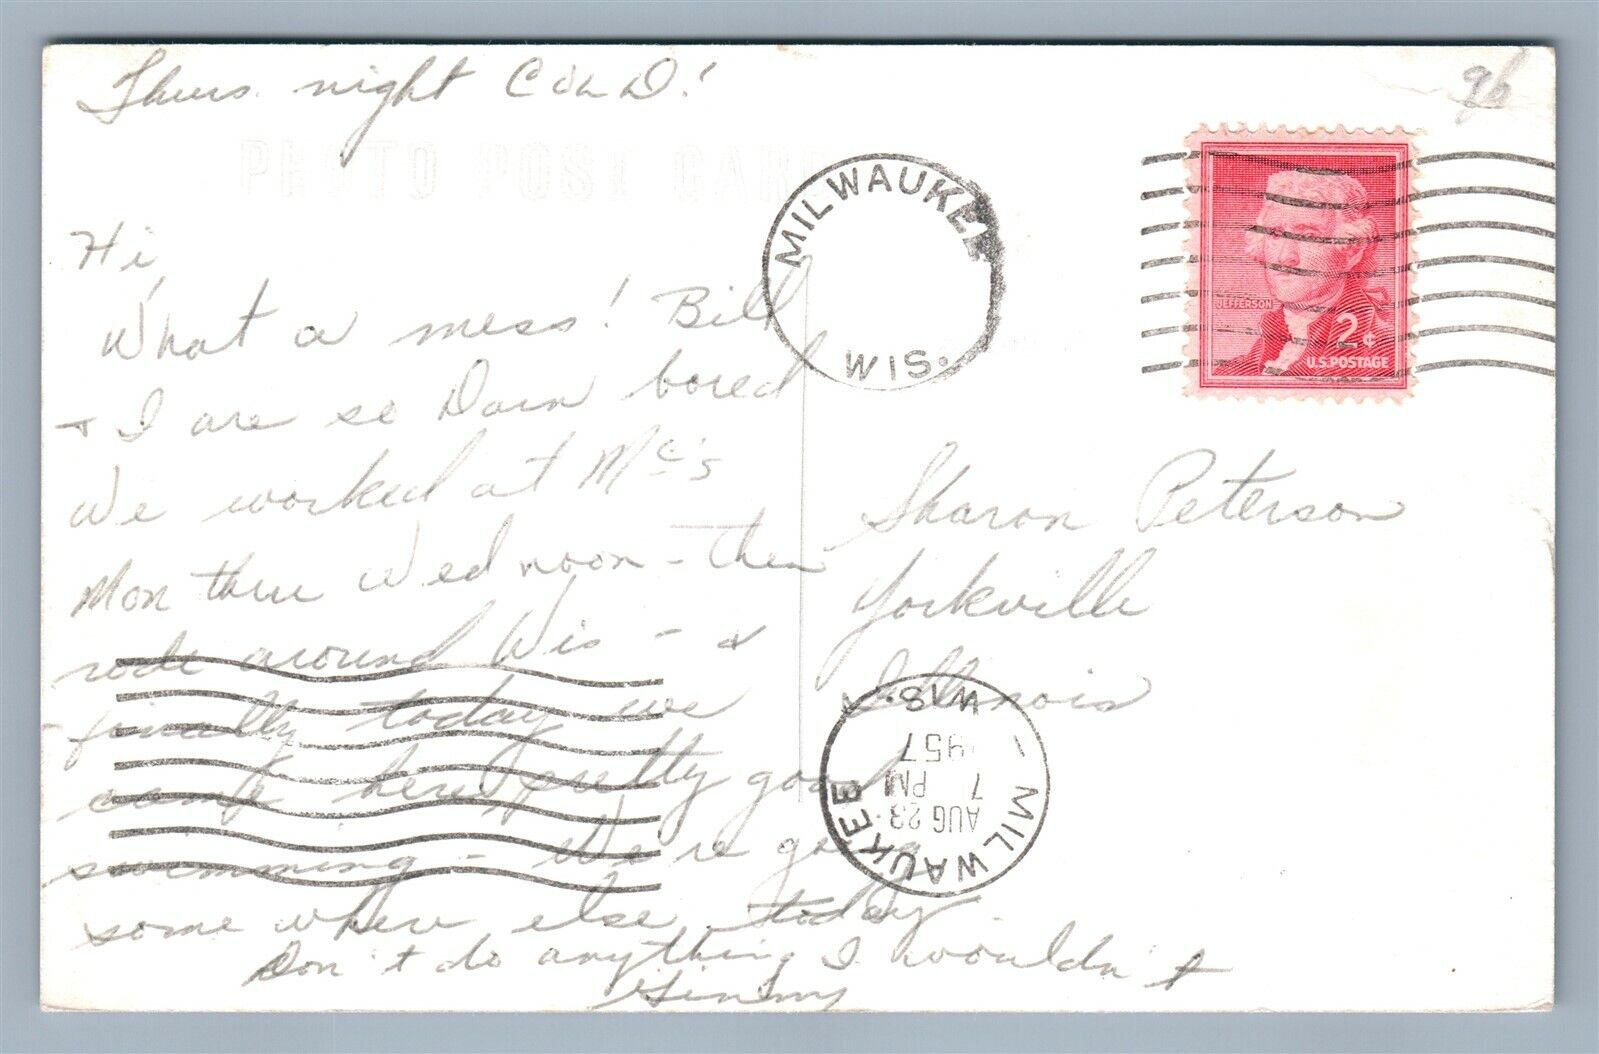 Thurs. night COLD!
9b
PHOTO POST CARD
MILWAUKEE
WIS.
JEFFERSON
2¢
U.S. POSTAGE
Hi,
What a mess! Bill
+ I are so Darn bored
We worked at Mc's
Mon thru Wed noon - then
rode around Wis - &
finally today we
came here, pretty good
swimming - We're going
some where else today
Don't do anything I wouldn't
Sharon Peterson
Yorkville
Illinois
MILWAUKEE WIS.
AUG 23
7 PM
1957